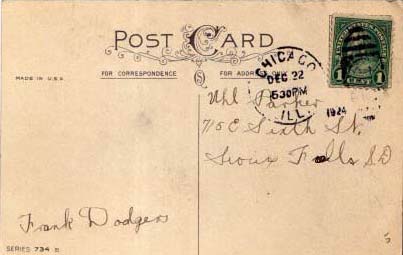 POST CARD
CHICAGO
DEC 22
5 30 PM
1924
ILL.
1 CENT 1
MADE IN U.S.A.
FOR CORRESPONDENCE
FOR ADDRESS ONLY
Uhl Parker
715 E Sixth St.
Sioux Falls SD
Frank Dodgers
SERIES 734 B